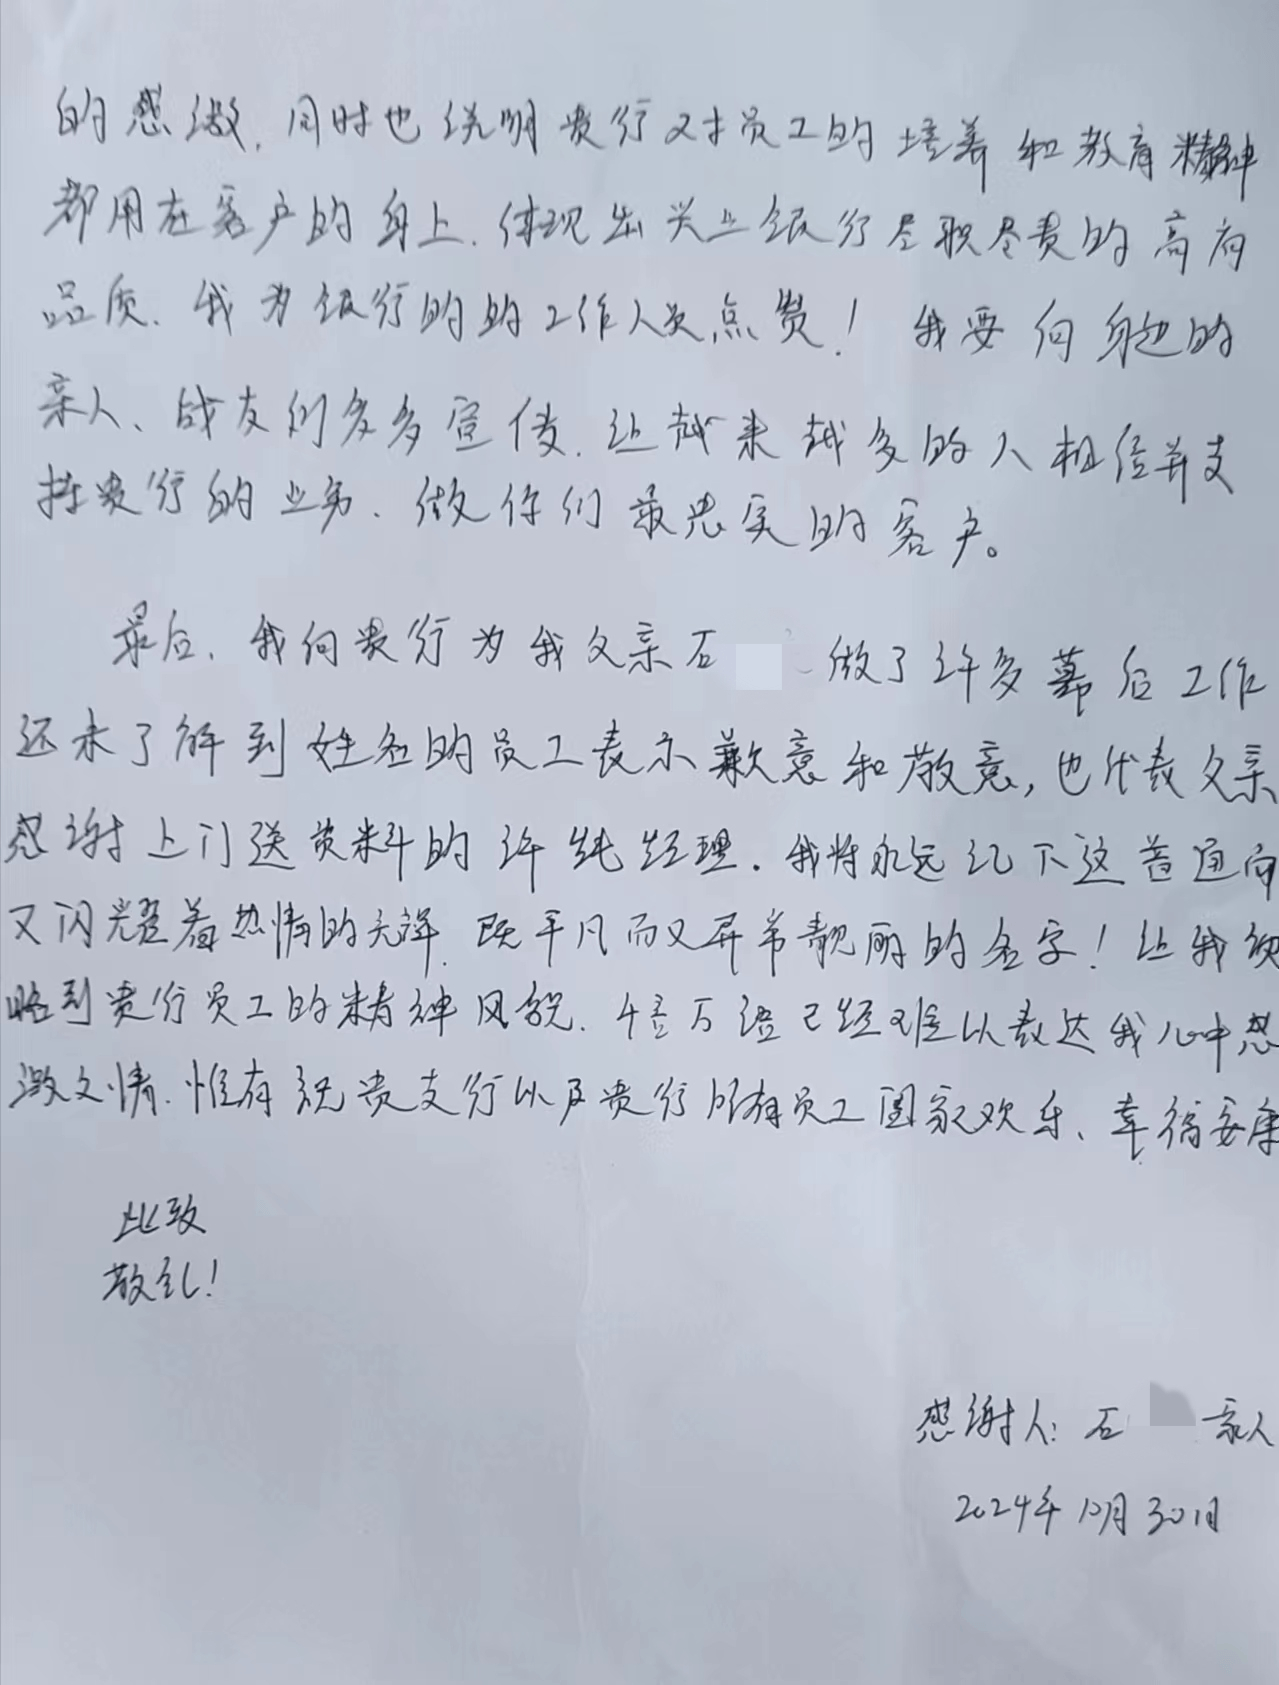 的感激,同时也说明贵行对员工的培养和教育精神
都用在客户的身上.体现出兴业银行尽职尽责的高尚
品质.我为银行的的工作人员点赞!我要向身边的
亲人、战友们多多宣传.让越来越多的人相信并支
持贵行的业务.做你们最忠实的客户。
最后.我向贵行为我父亲石 做了许多幕后工作
还未了解到姓名的员工表示歉意和敬意,也代表父亲
感谢上门送资料的许纯经理.我将永远记下这普通而
又闪耀着热情的光辉.既平凡而又异常靓丽的名字!让我领
略到贵行员工的精神风貌.千言万语已经难以表达我心中感
激之情.惟有祝贵支行以及贵行所有员工阖家欢乐、幸福安康
此致
敬礼!
感谢人:石 家人
2024年10月30日